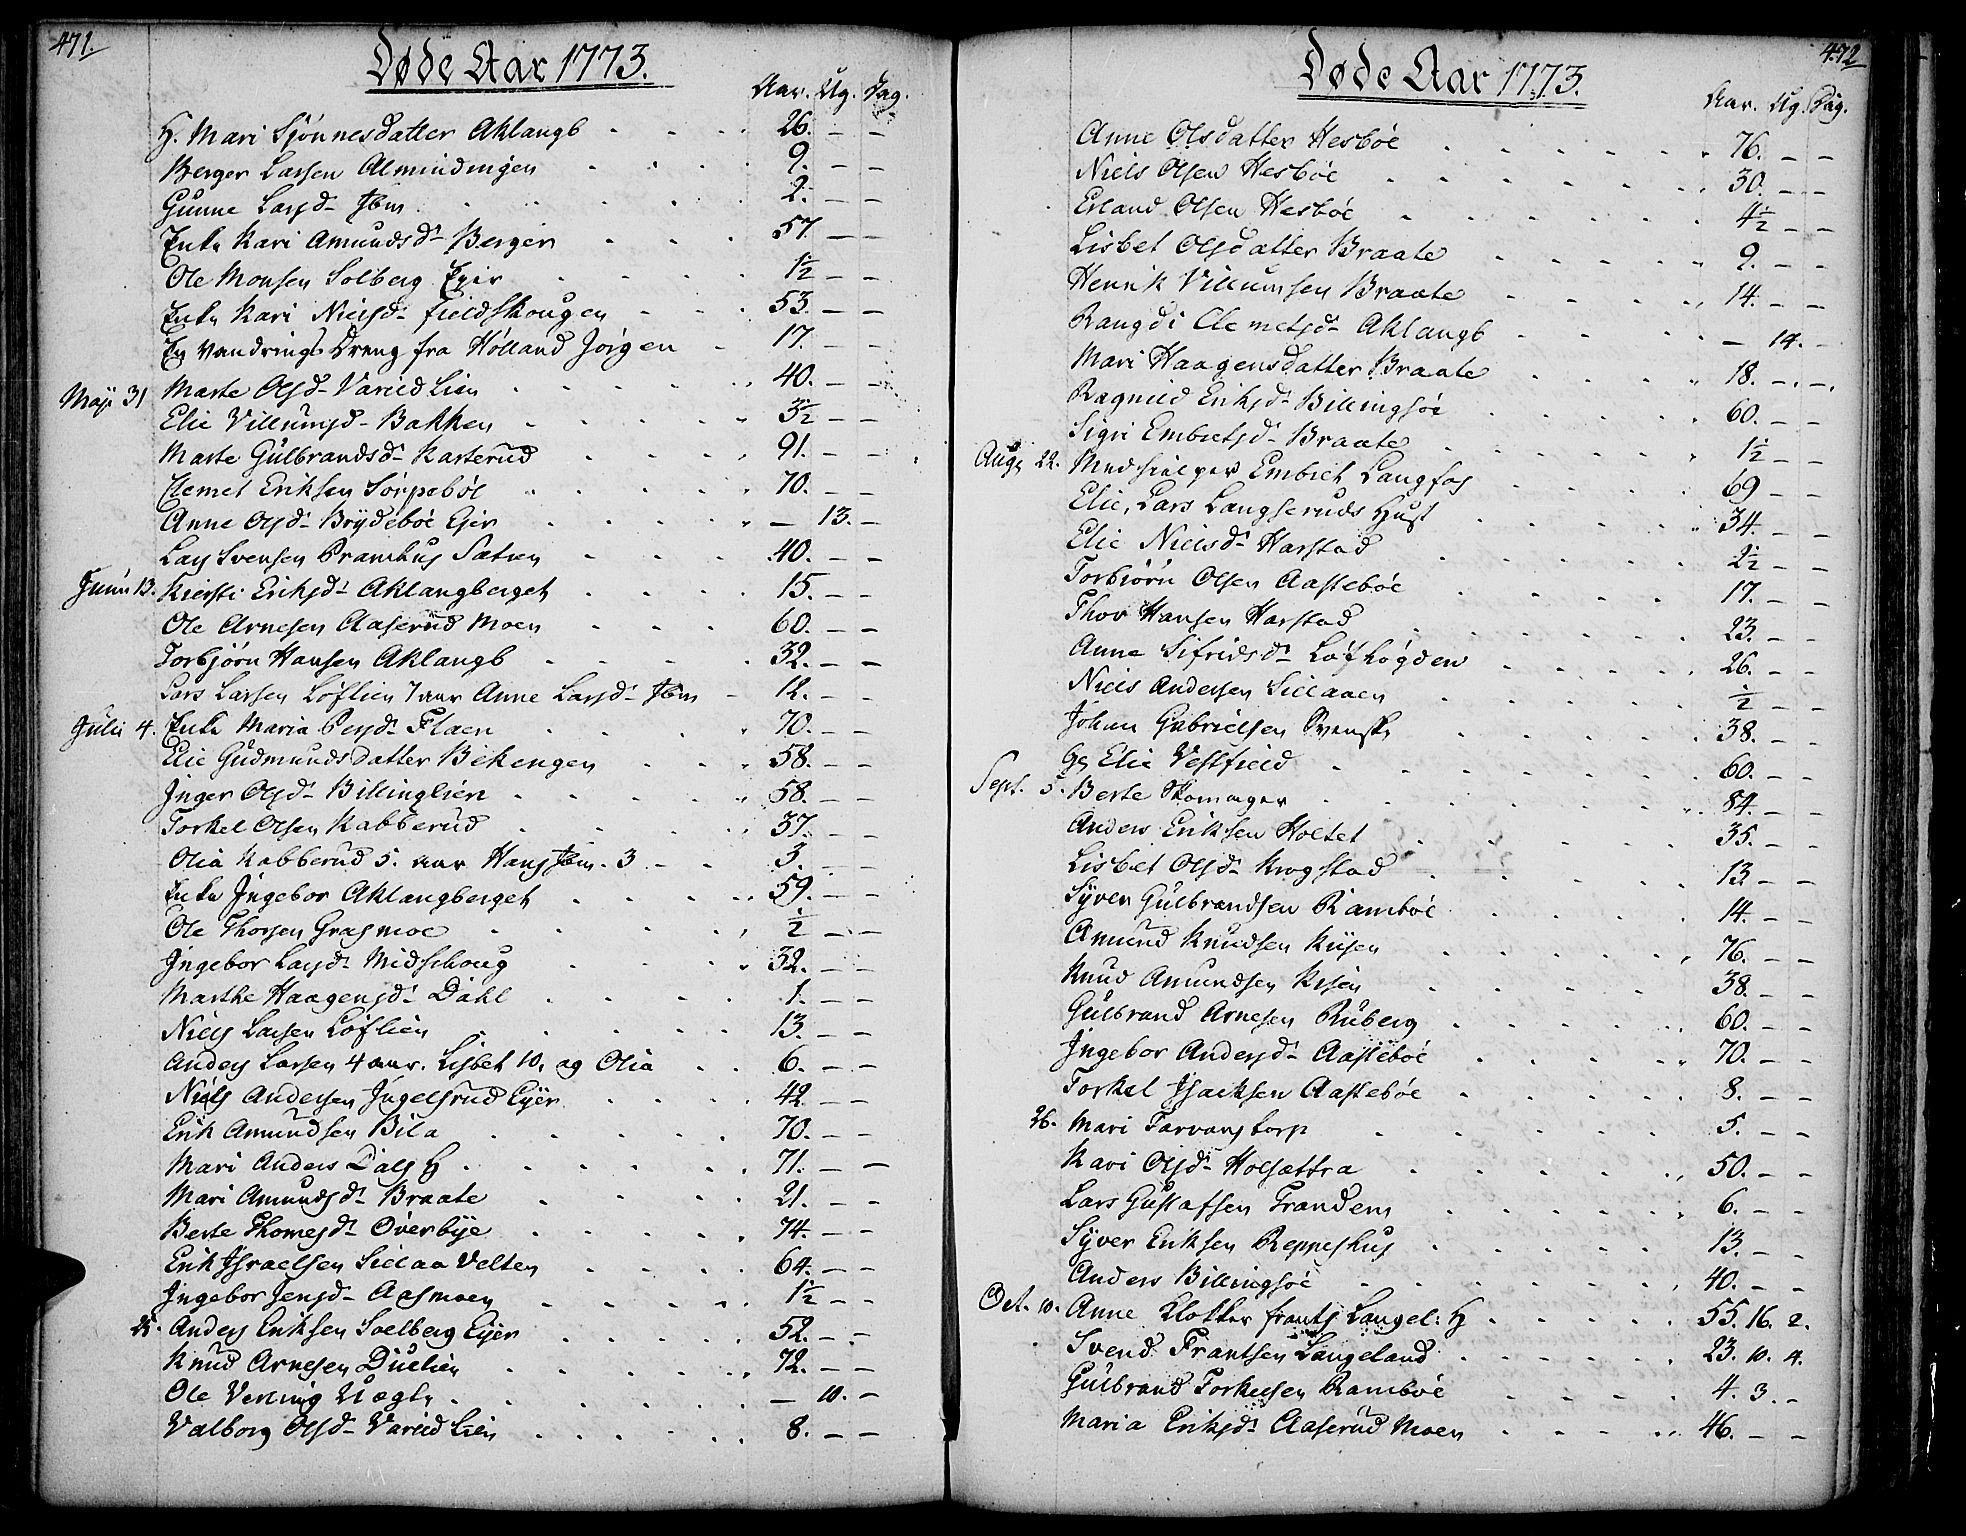 471.
Døde Aar 1773.
Aar. Ug. Dag.
H. Mari Sjønnesdatter Aklangb 26. – –
Berger Larsen Almindingen 9. – –
Gunne Larsd. Ibm 2. – –
Enke Kari Amundsd. Berger 57. – –
Ole Monsen Solberg Eyer 1½ – –
Enke Kari Nielsd. Fieldskougen 53. – –
En Vandrings Dreng fra Hølland Jørgen 17. – –
Maji 31 Marte Olsd. Varild Lien 40. – –
Elie Villumsd. Bakken 3½ – –
Marte Gulbrandsd. Karterud 91. – –
Clemet Eriksen Sørpebøe 70. – –
Anne Olsd. Brydebøe Ejer – 13. –
Lars Svensen Pramhus Sætren 40. – –
Junii 13. Kiersti Eriksd. Aklangberget 15. – –
Ole Arnesen Aaserud Moen 60. – –
Torbjørn Hansen Aklangb 32. – –
Lars Larsen Løflien 7 aar Anne Larsd. Ibm – 12. – –
Julii 4. Enke Maria Persd. Flaen 70. – –
Elie Gudmundsdatter Bekengen 58. – –
Inger Olsd. Billinglien 58. – –
Torkel Olsen Kabberud 37. – –
Olia Kabberud 5. aar Hans Ibm. 3 3. – –
Enke Ingebor Aklangberget 59. – –
Ole Thorsen Grasmoe ½ – –
Ingebor Larsd. Midskoug 32. – –
Marthe Haagensd. Dahl 1. – –
Niels Larsen Løflien 13. – –
Anders Larsen 4 aar. Lisbet 10. og Olia 6. – –
Niels Andersen Ingelsrud Eyer 42. – –
Erik Amundsen Bila 70. – –
Mari Anders Dals H 71. – –
Mari Amundsd. Braate 21. – –
Berte Thomesd. Overbye 74. – –
Erik Israelsen Sillaa Velten 64. – –
Ingebor Jensd. Aasmoen 1½ – –
25. Anders Eriksen Soelberg Eyer 52. – –
Knud Arnesen Duelien 72. – –
Ole Verning – 10. –
Valborg Olsd. Varild Lien 8. – –
472
Døde Aar 1773.
Aar. Ug. Dag.
Anne Olsdatter Hesbøe 76. – –
Niels Olsen Hesbøe 30. – –
Erland Olsen Hesbøe 4½ – –
Lisbet Olsdatter Braate 9. – –
Henrik Villumsen Braate 14. – –
Rangdi Clemetsd. Aklangb – 14. –
Mari Haagensdatter Braate 18. – –
Ragnild Eriksd. Billingsøe 60. – –
Sigri Embretsd. Braate 1½ – –
Aug 22. Medhielper Embret Langfos 69 – –
Elie, Lars Langseruds Hust 34. – –
Elie Nielsd. Harstad 2½ – –
Torbiørn Olsen Aastebøe 17. – –
Thor Hansen Harstad 23. – –
Anne Sifridsd. Løfhøgden 26. – –
Niels Andersen Sillaaen ½ – –
Johan Gabrielsen Svensk 38. – –
Elie Vestfield 60. – –
Sept. 5. Berte Skomager 84. – –
Anders Eriksen Holtet 35. – –
Lisbet Olsd. Krogstad 13. – –
Syver Gulbrandsen Rambøe 14. – –
Amund Knudsen Kiisen 76. – –
Knud Amundsen Kisen 38. – –
Gulbrand Arnesen Ruberg 60. – –
Ingebor Andersd. Aastebøe 70. – –
Torkel Isacksen Aastebøe 8. – –
26. Mari Tarvangtorp 5. – –
Kari Olsd. Holsættra 50. – –
Lars Gustafsen Trandem 6. – –
Syver Eriksen Reppeshus 13. – –
Anders Billingsøe 40. – –
Oct. 10. Anne Klokker Frants Langel: H 55. 16. 2.
Svend Frantsen Langeland 23. 10. 4.
Gulbrand Torkelsen Rambøe 4. 3. –
Maria Eriksd. Aaserud Moen 46. – –